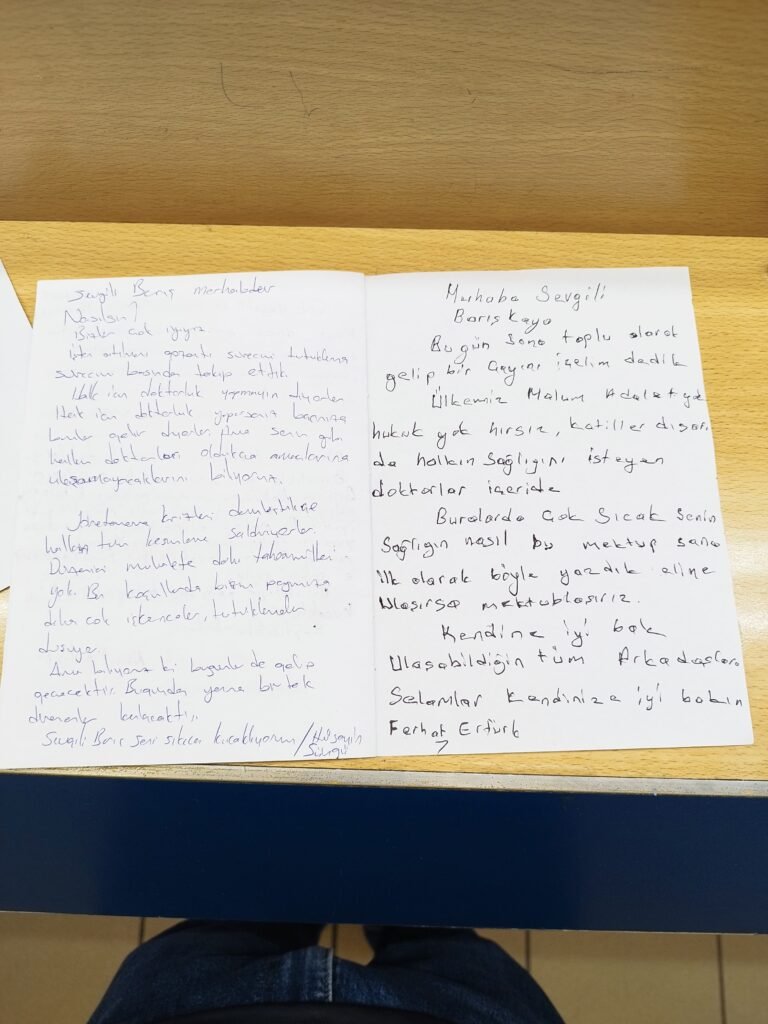 Sevgili Barış merhabalar
Nasılsın?
Bizler çok iyiyiz.
gözaltı sürecini tutuklama
sürecini basından takip ettik.
Halk için doktorluk yapmayın diyorlar
Halk için doktorluk yaparsanız başınıza
bunlar gelir diyorlar. Ama senin gibi
halkın doktorları oldukça amaçlarına
ulaşamayacaklarını biliyoruz.
Yönetememe krizleri derinleştikçe
halkın tüm kesimlerine saldırıyorlar.
Düzeniçi muhalefete dahi tahammülleri
yok. Bu koşullarda bizim payımıza
daha çok işkenceler, tutuklamalar
düşüyor.
Ama biliyoruz ki bugünler de gelip
geçecektir. Bugünden yarına bir tek
direnenler kalacaktır.
Sevgili Barış seni sıkıca kucaklıyorum / Hüseyin
Merhaba Sevgili
Barış Kaya
Bugün Sana toplu olarak
gelip bir Çayını içelim dedik
Ülkemiz Malum Adalet yok
hukuk yok hırsız, katiller dışarı
da halkın Sağlığını isteyen
doktorlar içeride
Buralarda Çok Sıcak Senin
Sağlığın nasıl bu mektup sana
ilk olarak böyle yazdık eline
Ulaşırsa mektublaşırız.
Kendine iyi bak
Ulaşabildiğin tüm Arkadaşlara
Selamlar Kendinize iyi bakın
Ferhat Ertürk